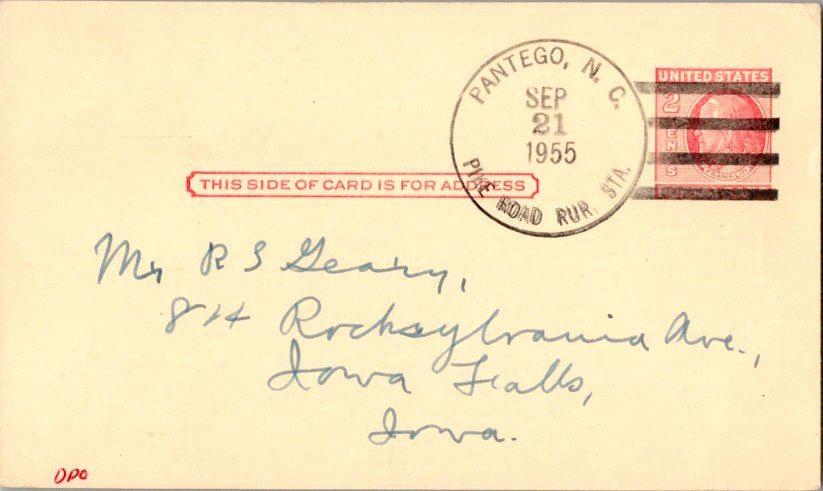 PANTEGO, N. C.
SEP
21
1955
PIKE ROAD RUR. STA.
UNITED STATES
2
CENTS
FRANKLIN
THIS SIDE OF CARD IS FOR ADDRESS
Mr R S Geary,
814 Rocksylvania Ave.,
Iowa Falls,
Iowa.
DPO